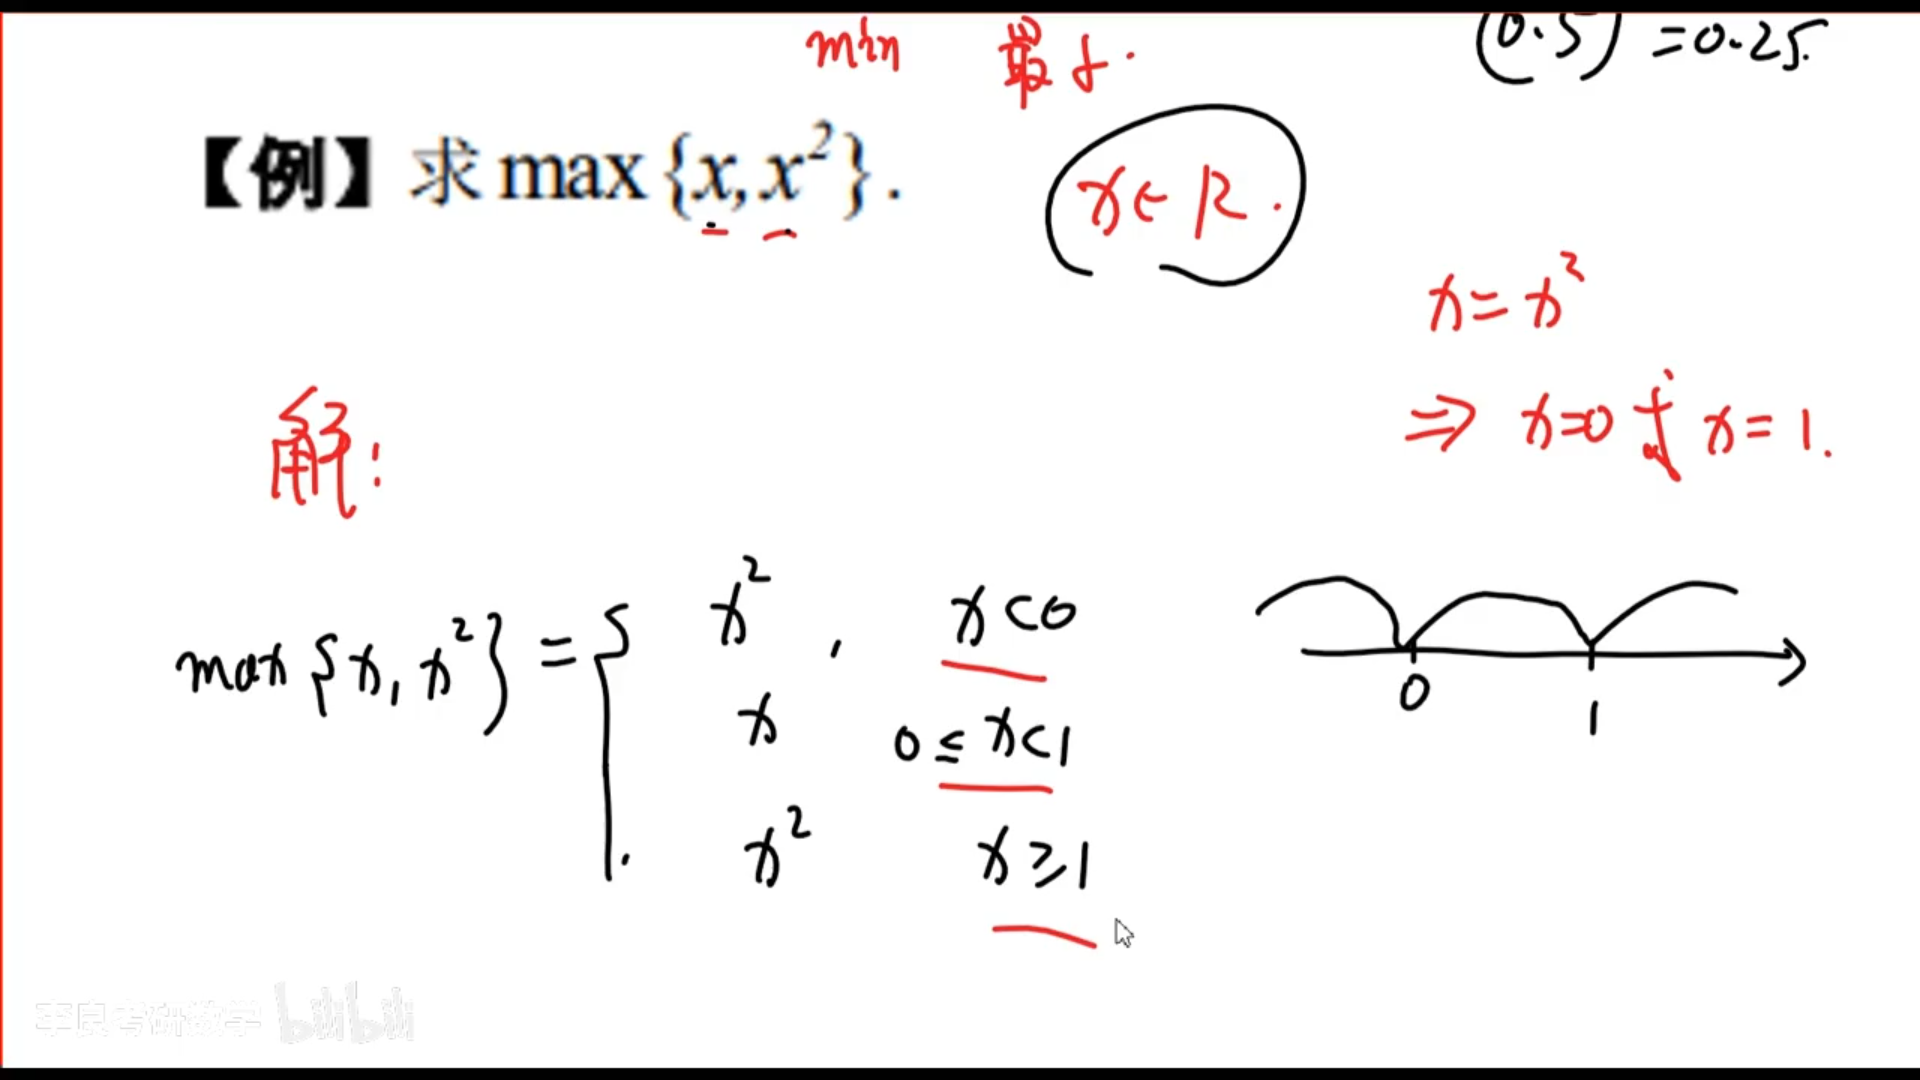 min 最小.
(0.5) =0.25.
【例】求 max {x, x²}.
x∈R.
x=x²
⇒ x=0 或 x=1.
解:
max{x, x²} = {
x² , x<0
x 0≤x<1
x² x≥1
0 1
李良考研数学 bilibili